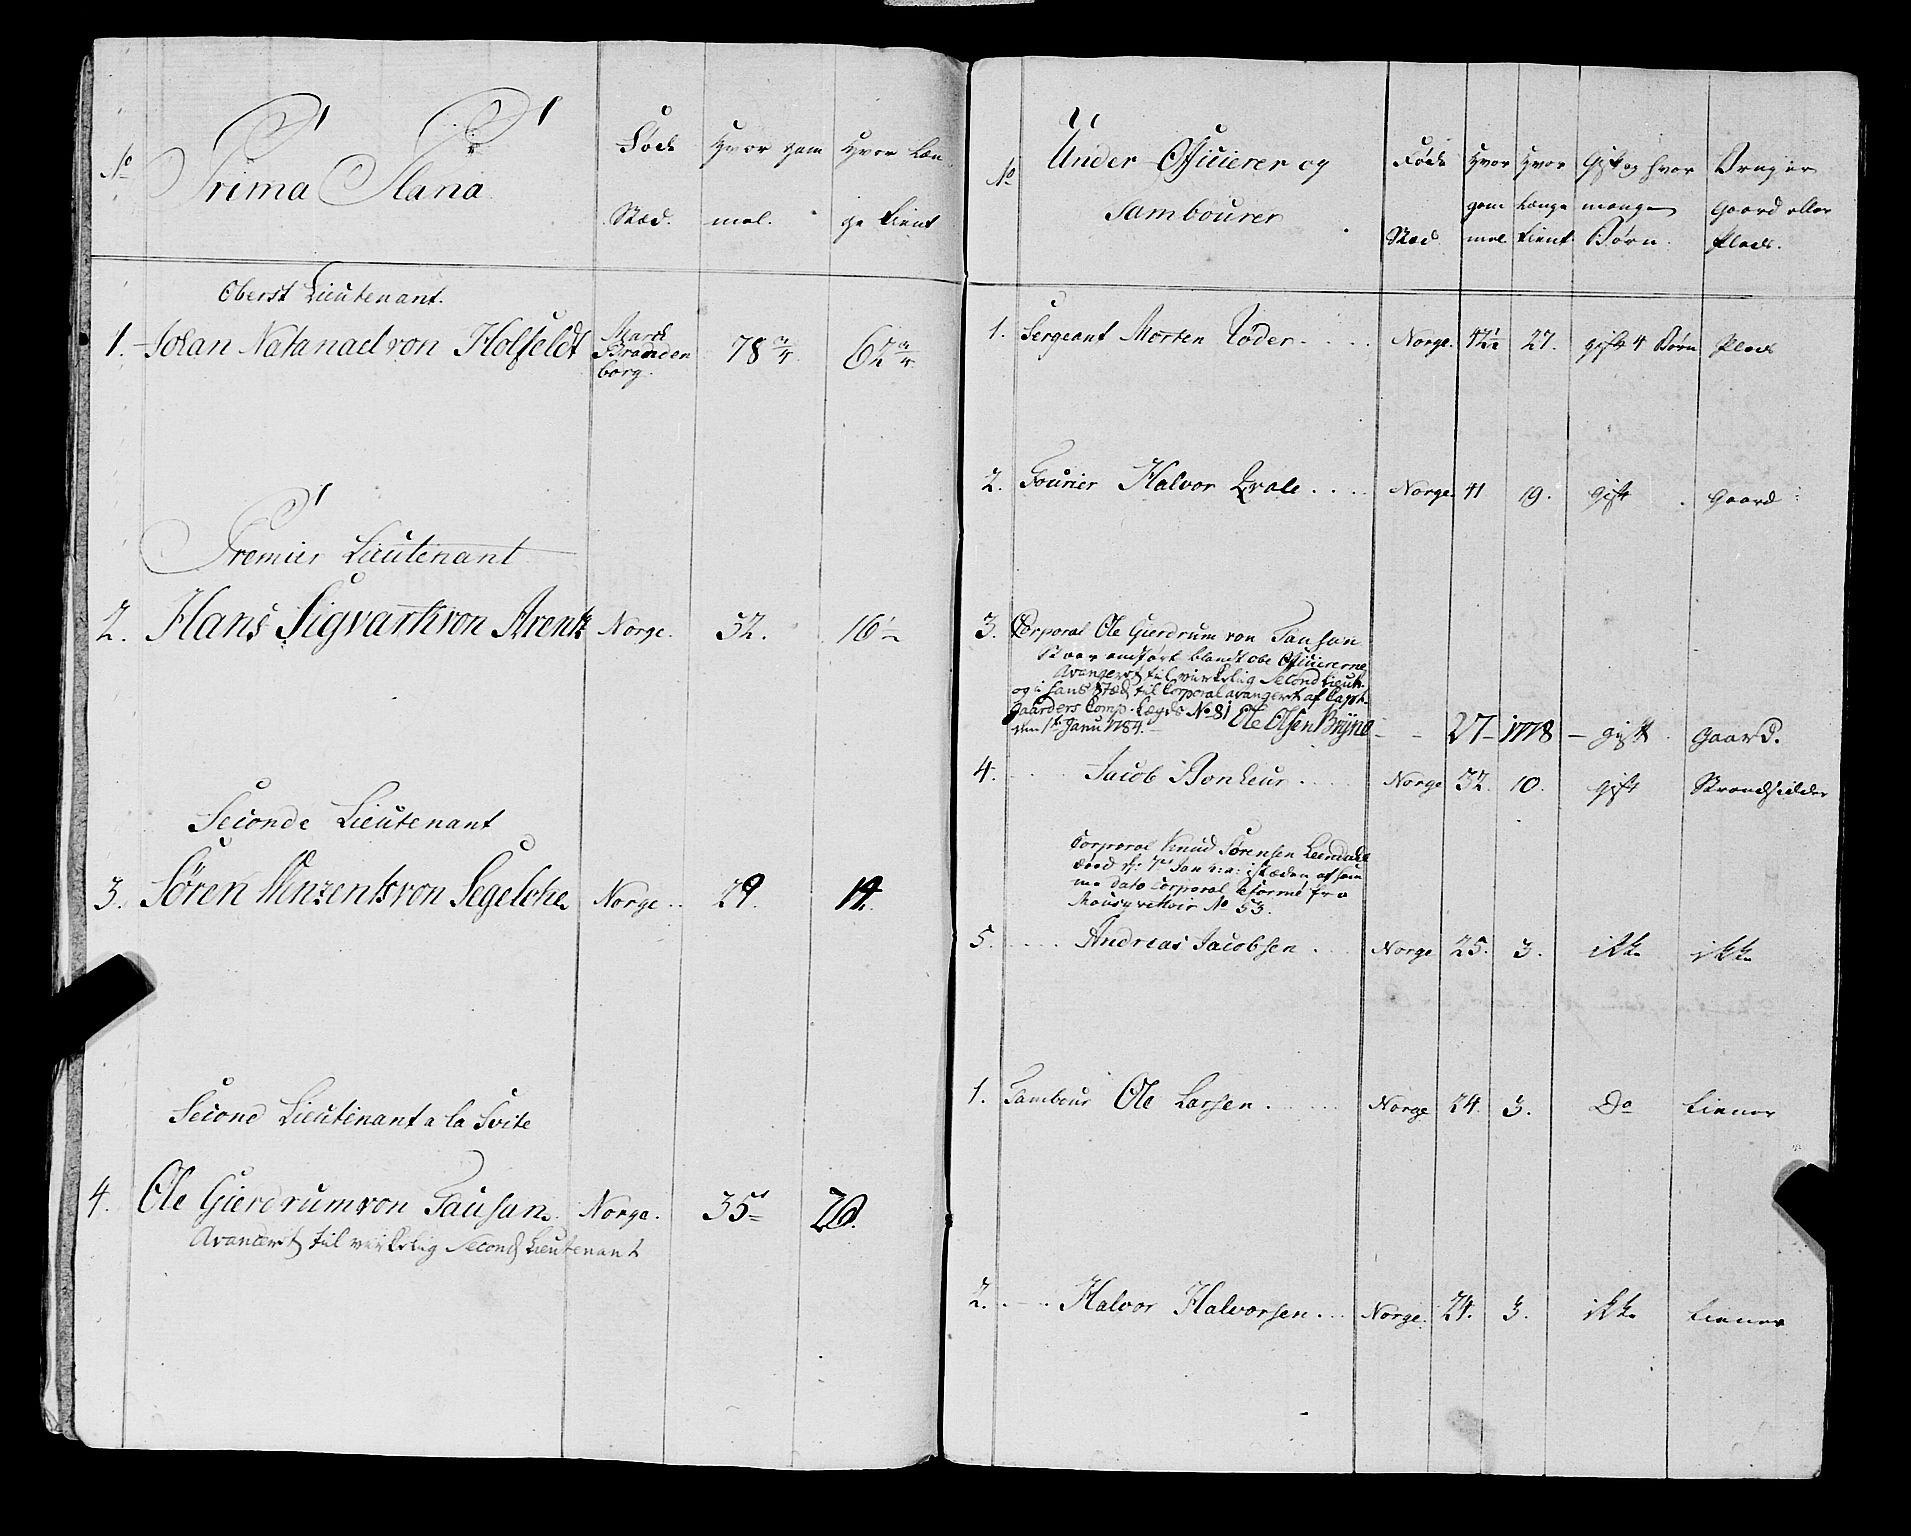 No
Prima Plana
Føde
Stæd.
Hvor gam
mel.
Hvor læn
ge tient
Oberst Lieutenant.
1. Johan Natanael von Holfeldt Mark Brandenborg. 78 3/4. 62 3/4.
Premier Lieutenant
2. Hans Sigvart von Arentz Norge. 32. 16 1/2
Seconde Lieutenant
3. Søren Vinzents von Segelche. Norge. 29. 14.
Second Lieutenant a la Svite
4. Ole Gierdrum von Tausan. Norge. 35 1/2 20.
Avancert til virkelig Second Lieutenant
No
Under Officierer og
Tambourer
Føde
Stæd.
Hvor
gam
mel
Hvor
længe
tient
Gift og hvor
mange
Børn.
Brug er
gaard eller
Plads.
1. Sergeant Morten Roder.... Norge. 42 1/2 27. gift 4 Børn Plads
2. Fourier Halvor Qvale.... Norge. 41 19. gift. gaard
3. Corporal Ole Gierdrum von Tausan
staar anført blandt Obe Officiererne
Avangert til virkelig Second Lieut.
og i hans Stæd til Corporal avangert af Capt.
Gaarders Comp. Lægds No 81 Ole Olsen Bryne - - 27 - 1778 - gift. gaard.
den 1te Janu 1784.
4. .... Jacob Bonheur.... Norge 32. 10. gift Strandsidder
Corporal Knud Sørensen Leendahl
død d: 7de Jan a:a: i Stæden af sam
me dato Corporal
No 53.
5. .... Andreas Jacobsen.. Norge 25. 3. ikke ikke
1. Tambour Ole Larsen..... Norge 24. 3. Do tiener
2. .... Halvor Halvorsen... Norge. 24. 3. ikke tiener